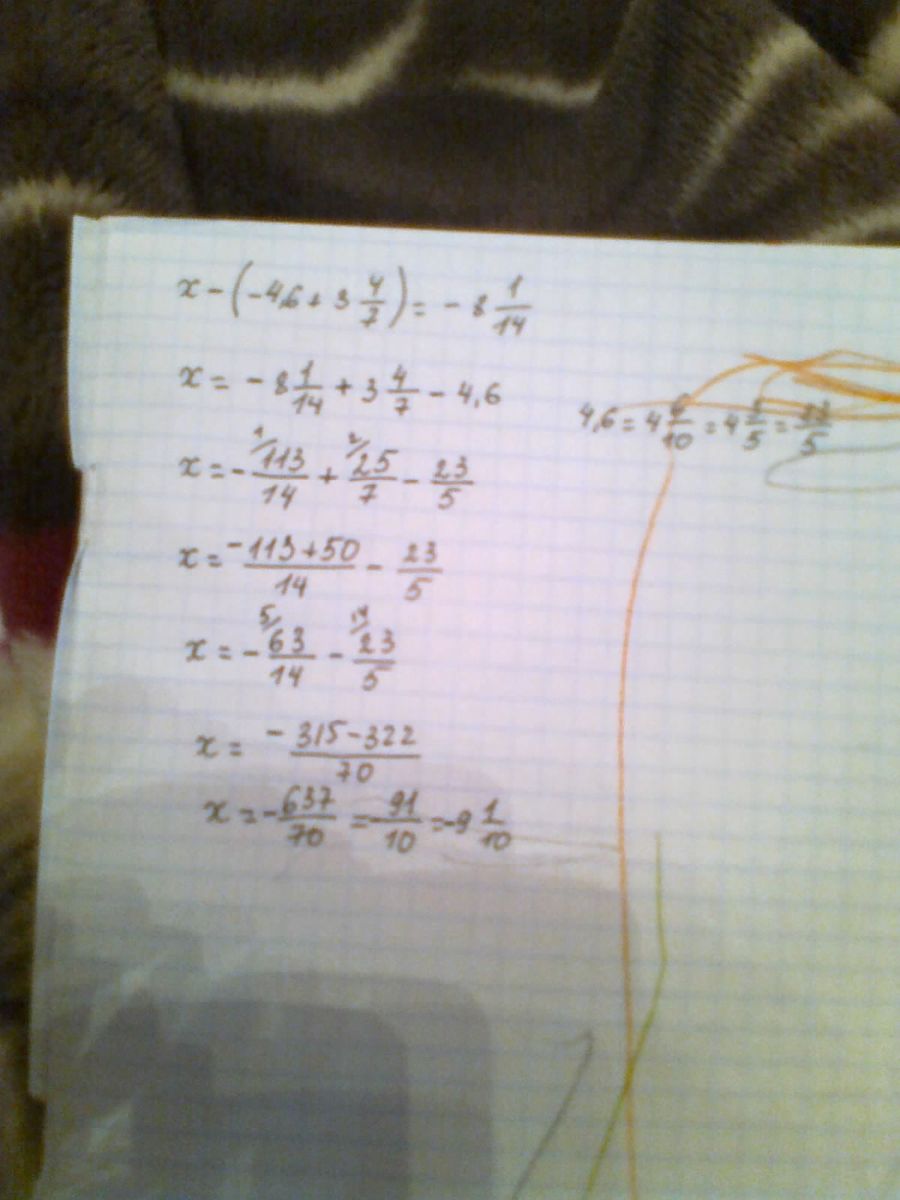 x - (-4,6 + 3 4/7) = - 8 1/14
x = - 8 1/14 + 3 4/7 - 4,6
4,6 = 4 6/10 = 4 3/5 = 23/5
x = - 1/ 113/14 + 2/ 25/7 - 23/5
x = -113+50/14 - 23/5
x = - 5/ 63/14 - 14/ 23/5
x = -315-322/70
x = - 637/70 = - 91/10 = -9 1/10